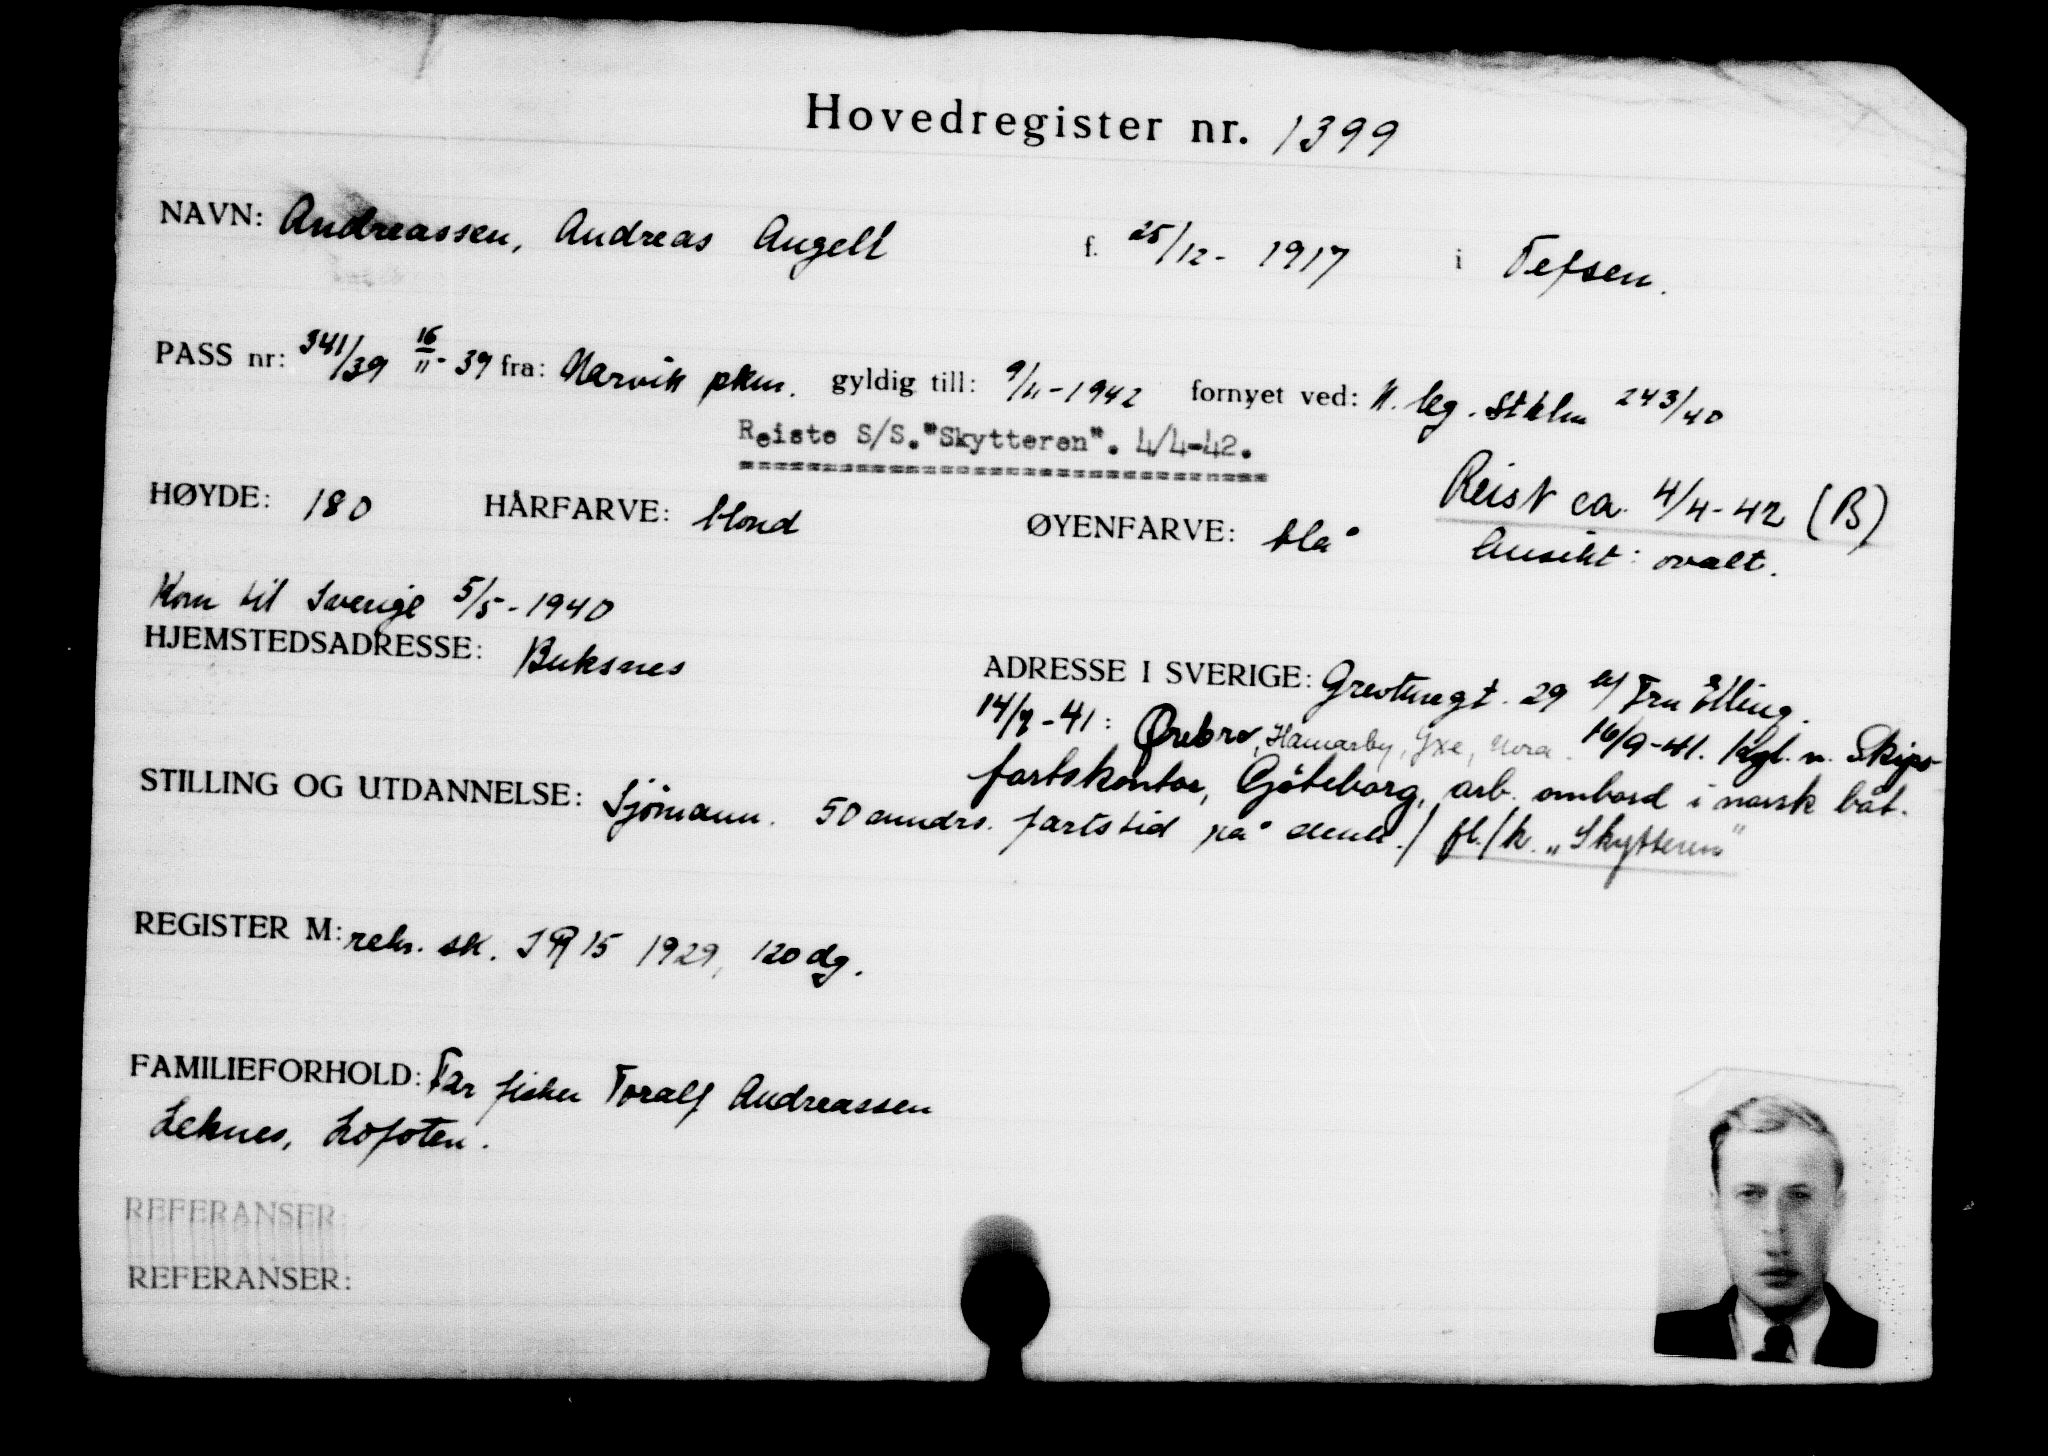 Hovedregister nr. 1399
NAVN: Andreassen, Andreas Angell f. 25/12- 1917 i Vefsen.
PASS nr: 341/39 16/11-39 fra: Narvik pkm. gyldig till: 9/11-1942 fornyet ved: N. leg. Sthlm 243/40
Reiste S/S."Skytteren". 4/4-42.
Reist ca. 4/4-42 (B)
HØYDE: 180 HÅRFARVE: blond ØYENFARVE: blå Ansikt: ovalt.
Kom til Sverige 5/5-1940
HJEMSTEDSADRESSE: Buksnes
ADRESSE I SVERIGE: Grevturegt. 29 c/ Fru Elling.
14/7-41: Ørebro, Hammarby, Gxe, Nora. 16/9-41. Kgl. n. Skips-
fartskontor, Göteborg, arb. ombord i norsk båt.
STILLING OG UTDANNELSE: Sjømann. 50 mndrs. fartstid på denne./ fl./k. "Skytteren"
REGISTER M: rekr. sk. IR 15 1929, 120 dg.
FAMILIEFORHOLD: Far fisker Toralf Andreassen
Leknes, Lofoten.
REFERANSER:
REFERANSER: